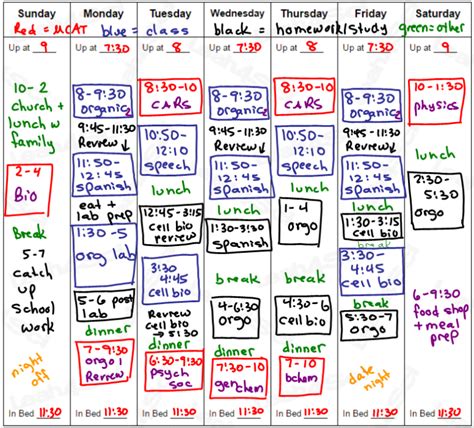 Sunday Monday Tuesday Wednesday Thursday Friday Saturday
Red = MCAT blue = class black = homework/study green = other
Up at 9 Up at 7:30 Up at 8 Up at 7:30 Up at 8 Up at 7:30 Up at 9
10-2
church +
lunch w
family
2-4
Bio
Break
5-7
catch
up
School
work
night
off
In Bed 11:30
8-9:30
organic2
9:45-11:30
Review↓
11:50-
12:45
spanish
eat +
lab prep
org lab
5-6 post
lab
dinner
7-9:30
orgo1
Review
In Bed 11:30
8:30-10
CARS
10:50-
12:10
speech
lunch
12:45-3:15
cell bio
review
3:30
4:45
cell bio
Review
cell bio
→ 5:30
dinner
6:30-9:30
psych
soc
In Bed 11:30
8-9:30
organic2
9:45-11:30
Review↓
11:50-
12:45
spanish
lunch
1:30-3:30
spanish
break
4-6:30
orgo
dinner
7-10
genchem
In Bed 11:30
8:30-10
CARS
10:50-
12:10
speech
lunch
1-4
orgo
break
4:30-6
cell bio
dinner
7-10
bchem
In Bed 11:30
8-9:30
organic2
9:45-11:30
Review↓
11:50-
12:45
spanish
lunch
1:30-3:15
cell bio
break
3:30-
4:45
cell bio
5:30-7
orgo
date
night
In Bed 11:30
10-1:30
physics
lunch
2:30-
5:30
orgo
6-9:30
food shop
+ meal
prep
In Bed 11:30